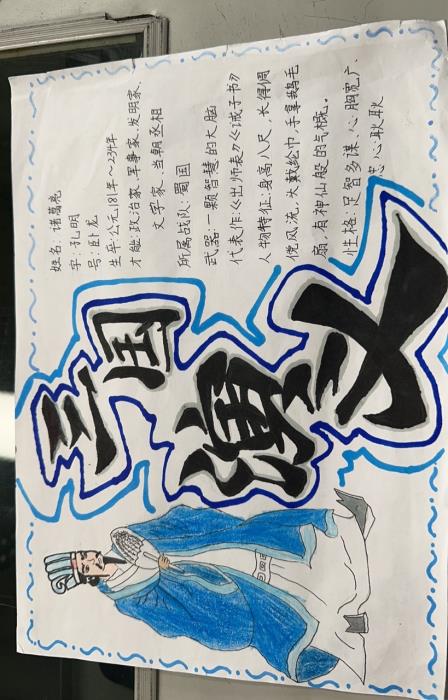 三国
演义
姓名:诸葛亮
字:孔明
号:卧龙
生平:公元181年~234年
才能:政治家、军事家、发明家、
文学家、当朝丞相
所属战队:蜀国
武器:一颗智慧的大脑
代表作:《出师表》《诫子书》
人物特征:身高八尺,长得倜
傥风流,头戴纶巾,手拿鹅毛
扇,有神仙般的气概。
性格:足智多谋、心胸宽广、
忠心耿耿